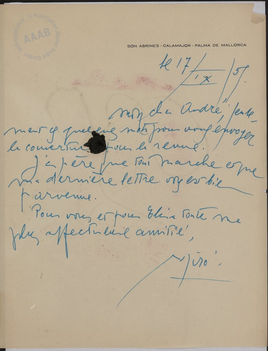 AAAB
SON ABRINES - CALAMAJOR - PALMA DE MALLORCA
le 17/IX/57
mon cher André,
mots pour vous envoyer
la couverture pour la revue.
J'espère que tout marche et que
ma dernière lettre vous est bien
parvenue.
Pour vous et pour Elisa toute ma
plus affectueuse amitié,
Miró.